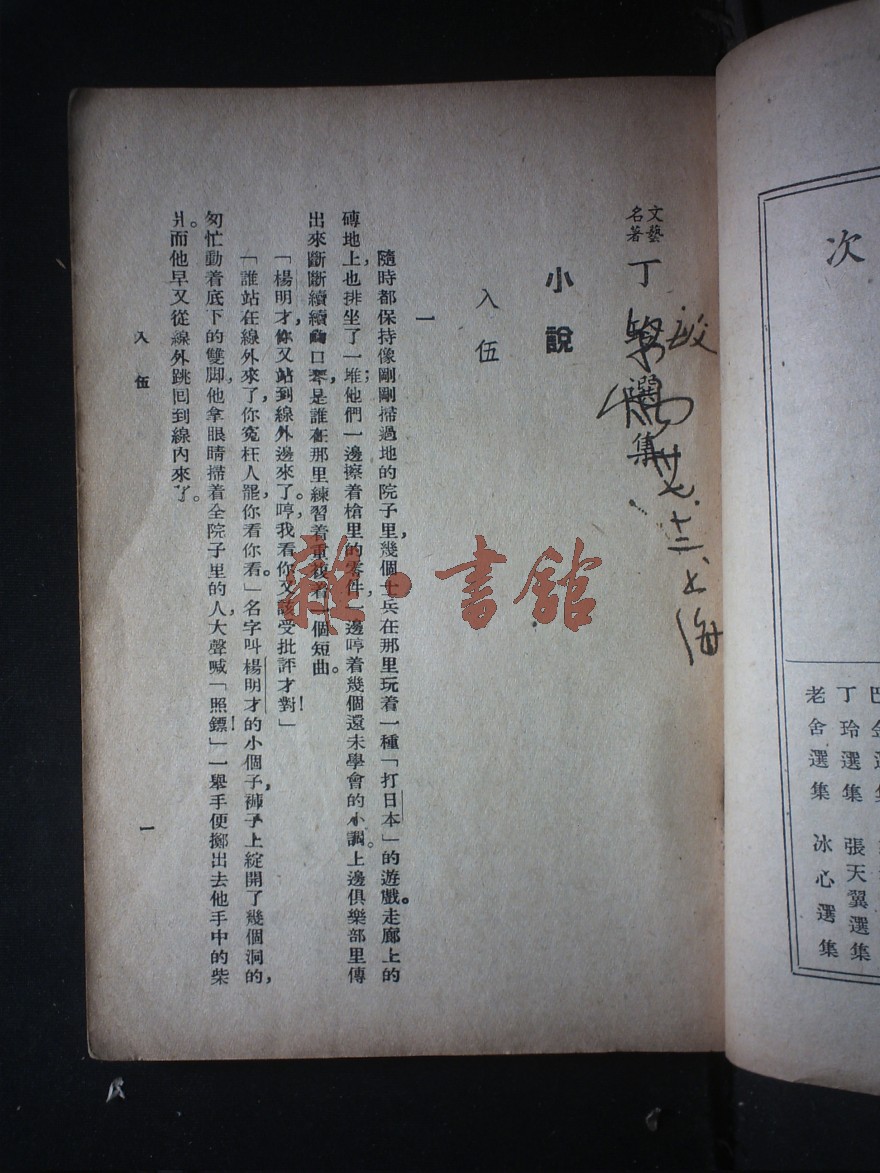 文藝
名著
丁玲選集
小說
入伍
一
隨時都保持像剛剛掃過地的院子里，幾個士兵在那里玩着一種「打日本」的遊戲。走廊上的
磚地上，也排坐了一堆；他們一邊擦着槍里的零件，一邊哼着幾個還未學會的小調。上邊俱樂部里傳
出來斷斷續續的口琴，是誰在那里練習着重複着一個短曲。
「楊明才，你又站到線外邊來了。哼，我看你又該受批評才對！」
「誰站在線外來了，你冤枉人罷，你看你看。」名字叫楊明才的小個子，褲子上綻開了幾個洞的，
匆忙動着底下的雙脚，他拿眼睛掃着全院子里的人，大聲喊「照鏢！」一舉手便擲出去他手中的柴
爿。而他早又從線外跳回到線內來了。
入伍
一
廿七.十二.上海
雜·書館
次
老舍選集
丁玲選集
冰心選集
張天翼選集